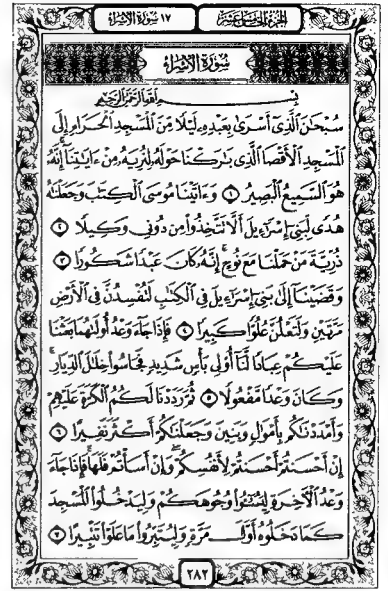 ١٧ سورة الإسراء الجزء الخامس عشر
سورة الإسراء
بسم الله الرحمن الرحيم
سُبْحَٰنَ ٱلَّذِىٓ أَسْرَىٰ بِعَبْدِهِۦ لَيْلًا مِّنَ ٱلْمَسْجِدِ ٱلْحَرَامِ إِلَى
ٱلْمَسْجِدِ ٱلْأَقْصَا ٱلَّذِى بَٰرَكْنَا حَوْلَهُۥ لِنُرِيَهُۥ مِنْ ءَايَٰتِنَآ إِنَّهُۥ
هُوَ ٱلسَّمِيعُ ٱلْبَصِيرُ ١ وَءَاتَيْنَا مُوسَى ٱلْكِتَٰبَ وَجَعَلْنَٰهُ
هُدًى لِّبَنِىٓ إِسْرَٰٓءِيلَ أَلَّا تَتَّخِذُوا۟ مِن دُونِى وَكِيلًا ٢
ذُرِّيَّةَ مَنْ حَمَلْنَا مَعَ نُوحٍ إِنَّهُۥ كَانَ عَبْدًا شَكُورًا ٣
وَقَضَيْنَآ إِلَىٰ بَنِىٓ إِسْرَٰٓءِيلَ فِى ٱلْكِتَٰبِ لَتُفْسِدُنَّ فِى ٱلْأَرْضِ
مَرَّتَيْنِ وَلَتَعْلُنَّ عُلُوًّا كَبِيرًا ٤ فَإِذَا جَآءَ وَعْدُ أُولَىٰهُمَا بَعَثْنَا
عَلَيْكُمْ عِبَادًا لَّنَآ أُو۟لِى بَأْسٍ شَدِيدٍ فَجَاسُوا۟ خِلَٰلَ ٱلدِّيَارِ
وَكَانَ وَعْدًا مَّفْعُولًا ٥ ثُمَّ رَدَدْنَا لَكُمُ ٱلْكَرَّةَ عَلَيْهِمْ
وَأَمْدَدْنَٰكُم بِأَمْوَٰلٍ وَبَنِينَ وَجَعَلْنَٰكُمْ أَكْثَرَ نَفِيرًا ٦
إِنْ أَحْسَنتُمْ أَحْسَنتُمْ لِأَنفُسِكُمْ وَإِنْ أَسَأْتُمْ فَلَهَا فَإِذَا جَآءَ
وَعْدُ ٱلْءَاخِرَةِ لِيَسُۥٓـُٔوا۟ وُجُوهَكُمْ وَلِيَدْخُلُوا۟ ٱلْمَسْجِدَ
كَمَا دَخَلُوهُ أَوَّلَ مَرَّةٍ وَلِيُتَبِّرُوا۟ مَا عَلَوْا۟ تَتْبِيرًا ٧
٢٨٢